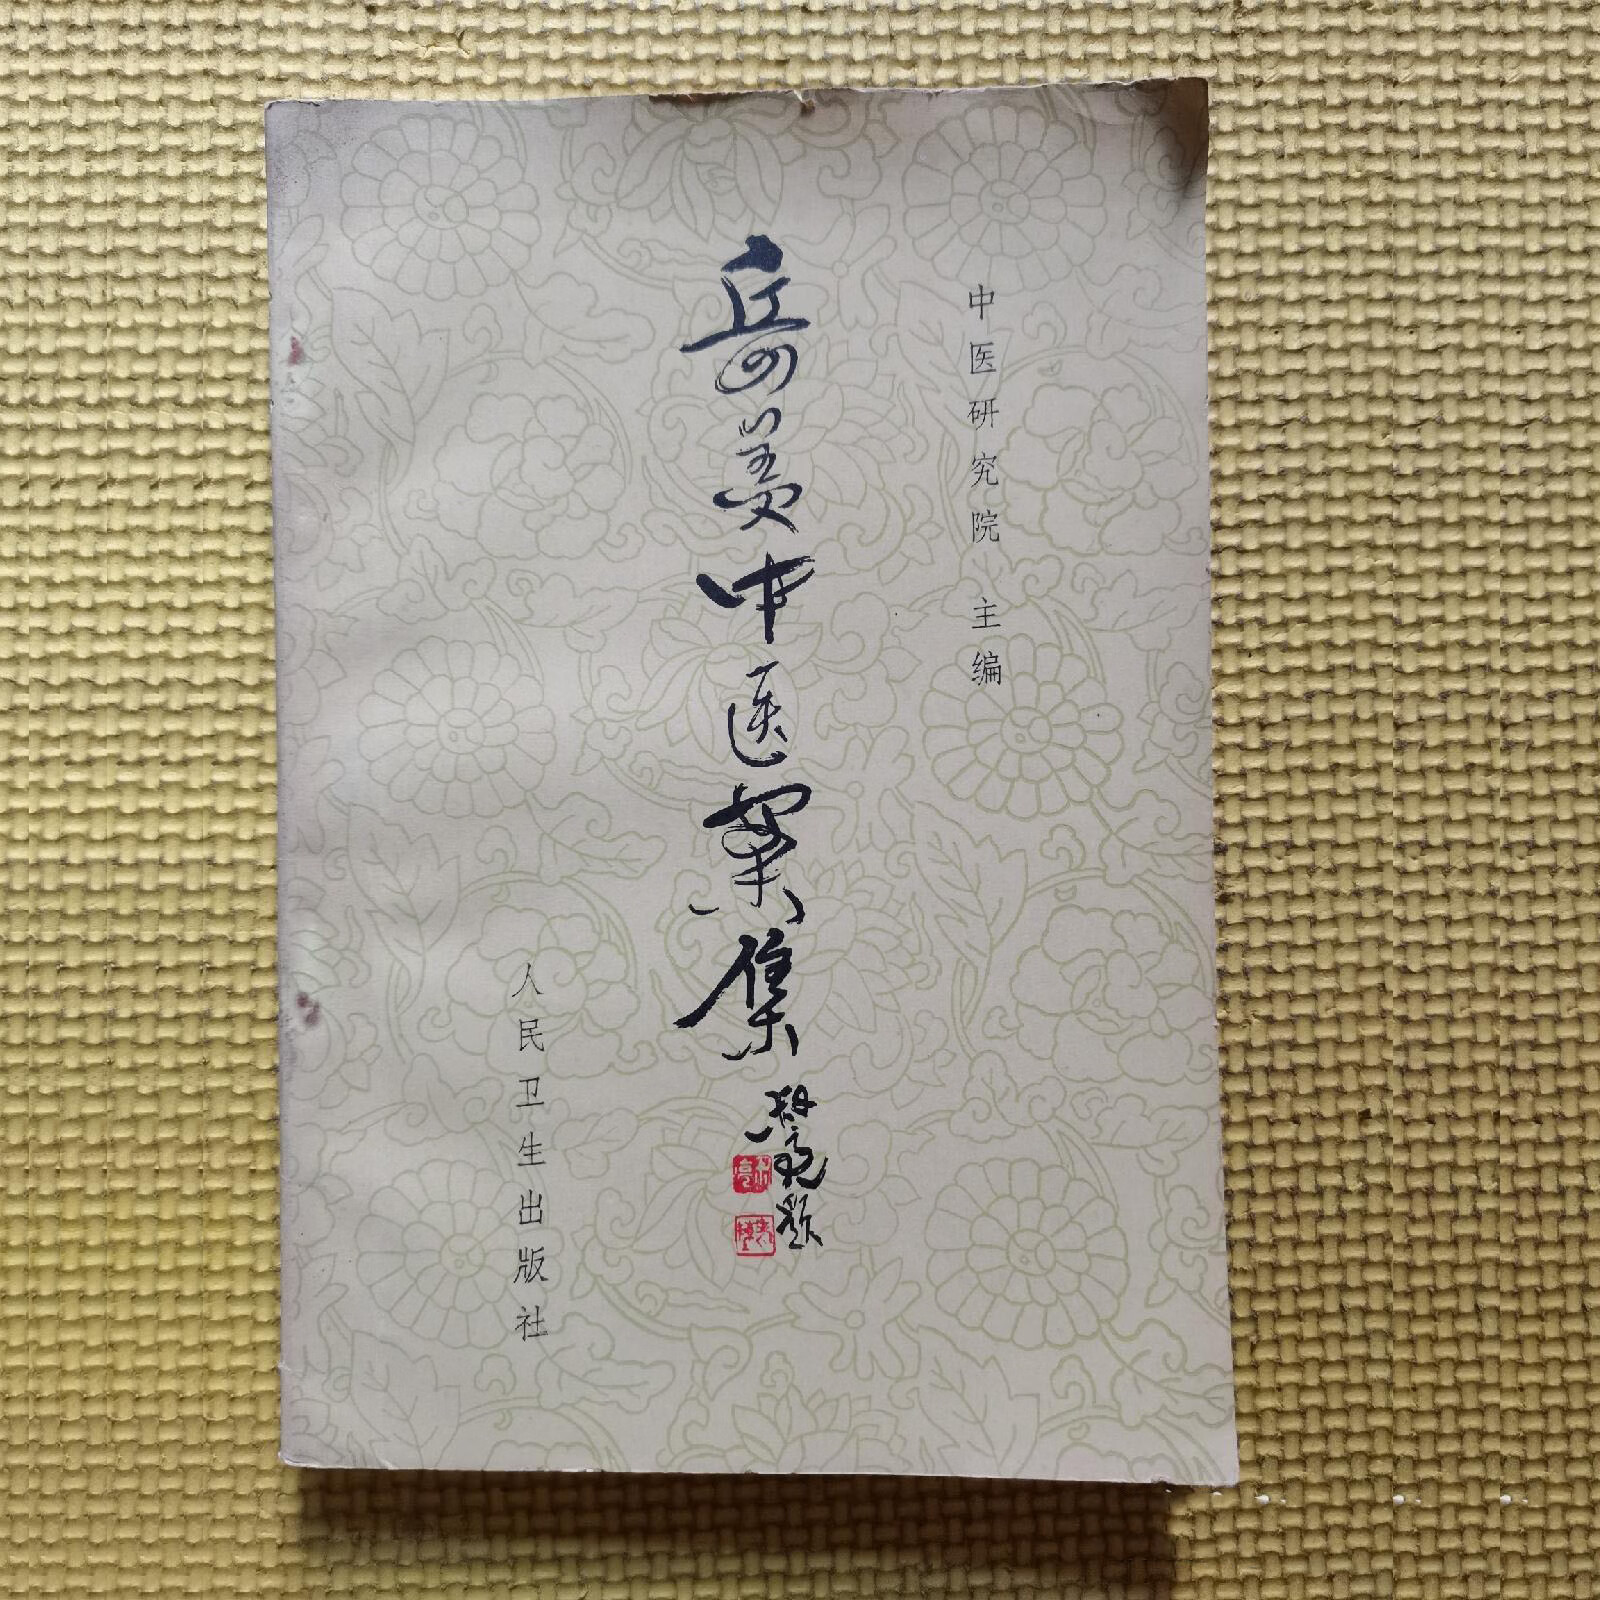 中医研究院 主编
岳美中医案集
题
人民卫生出版社